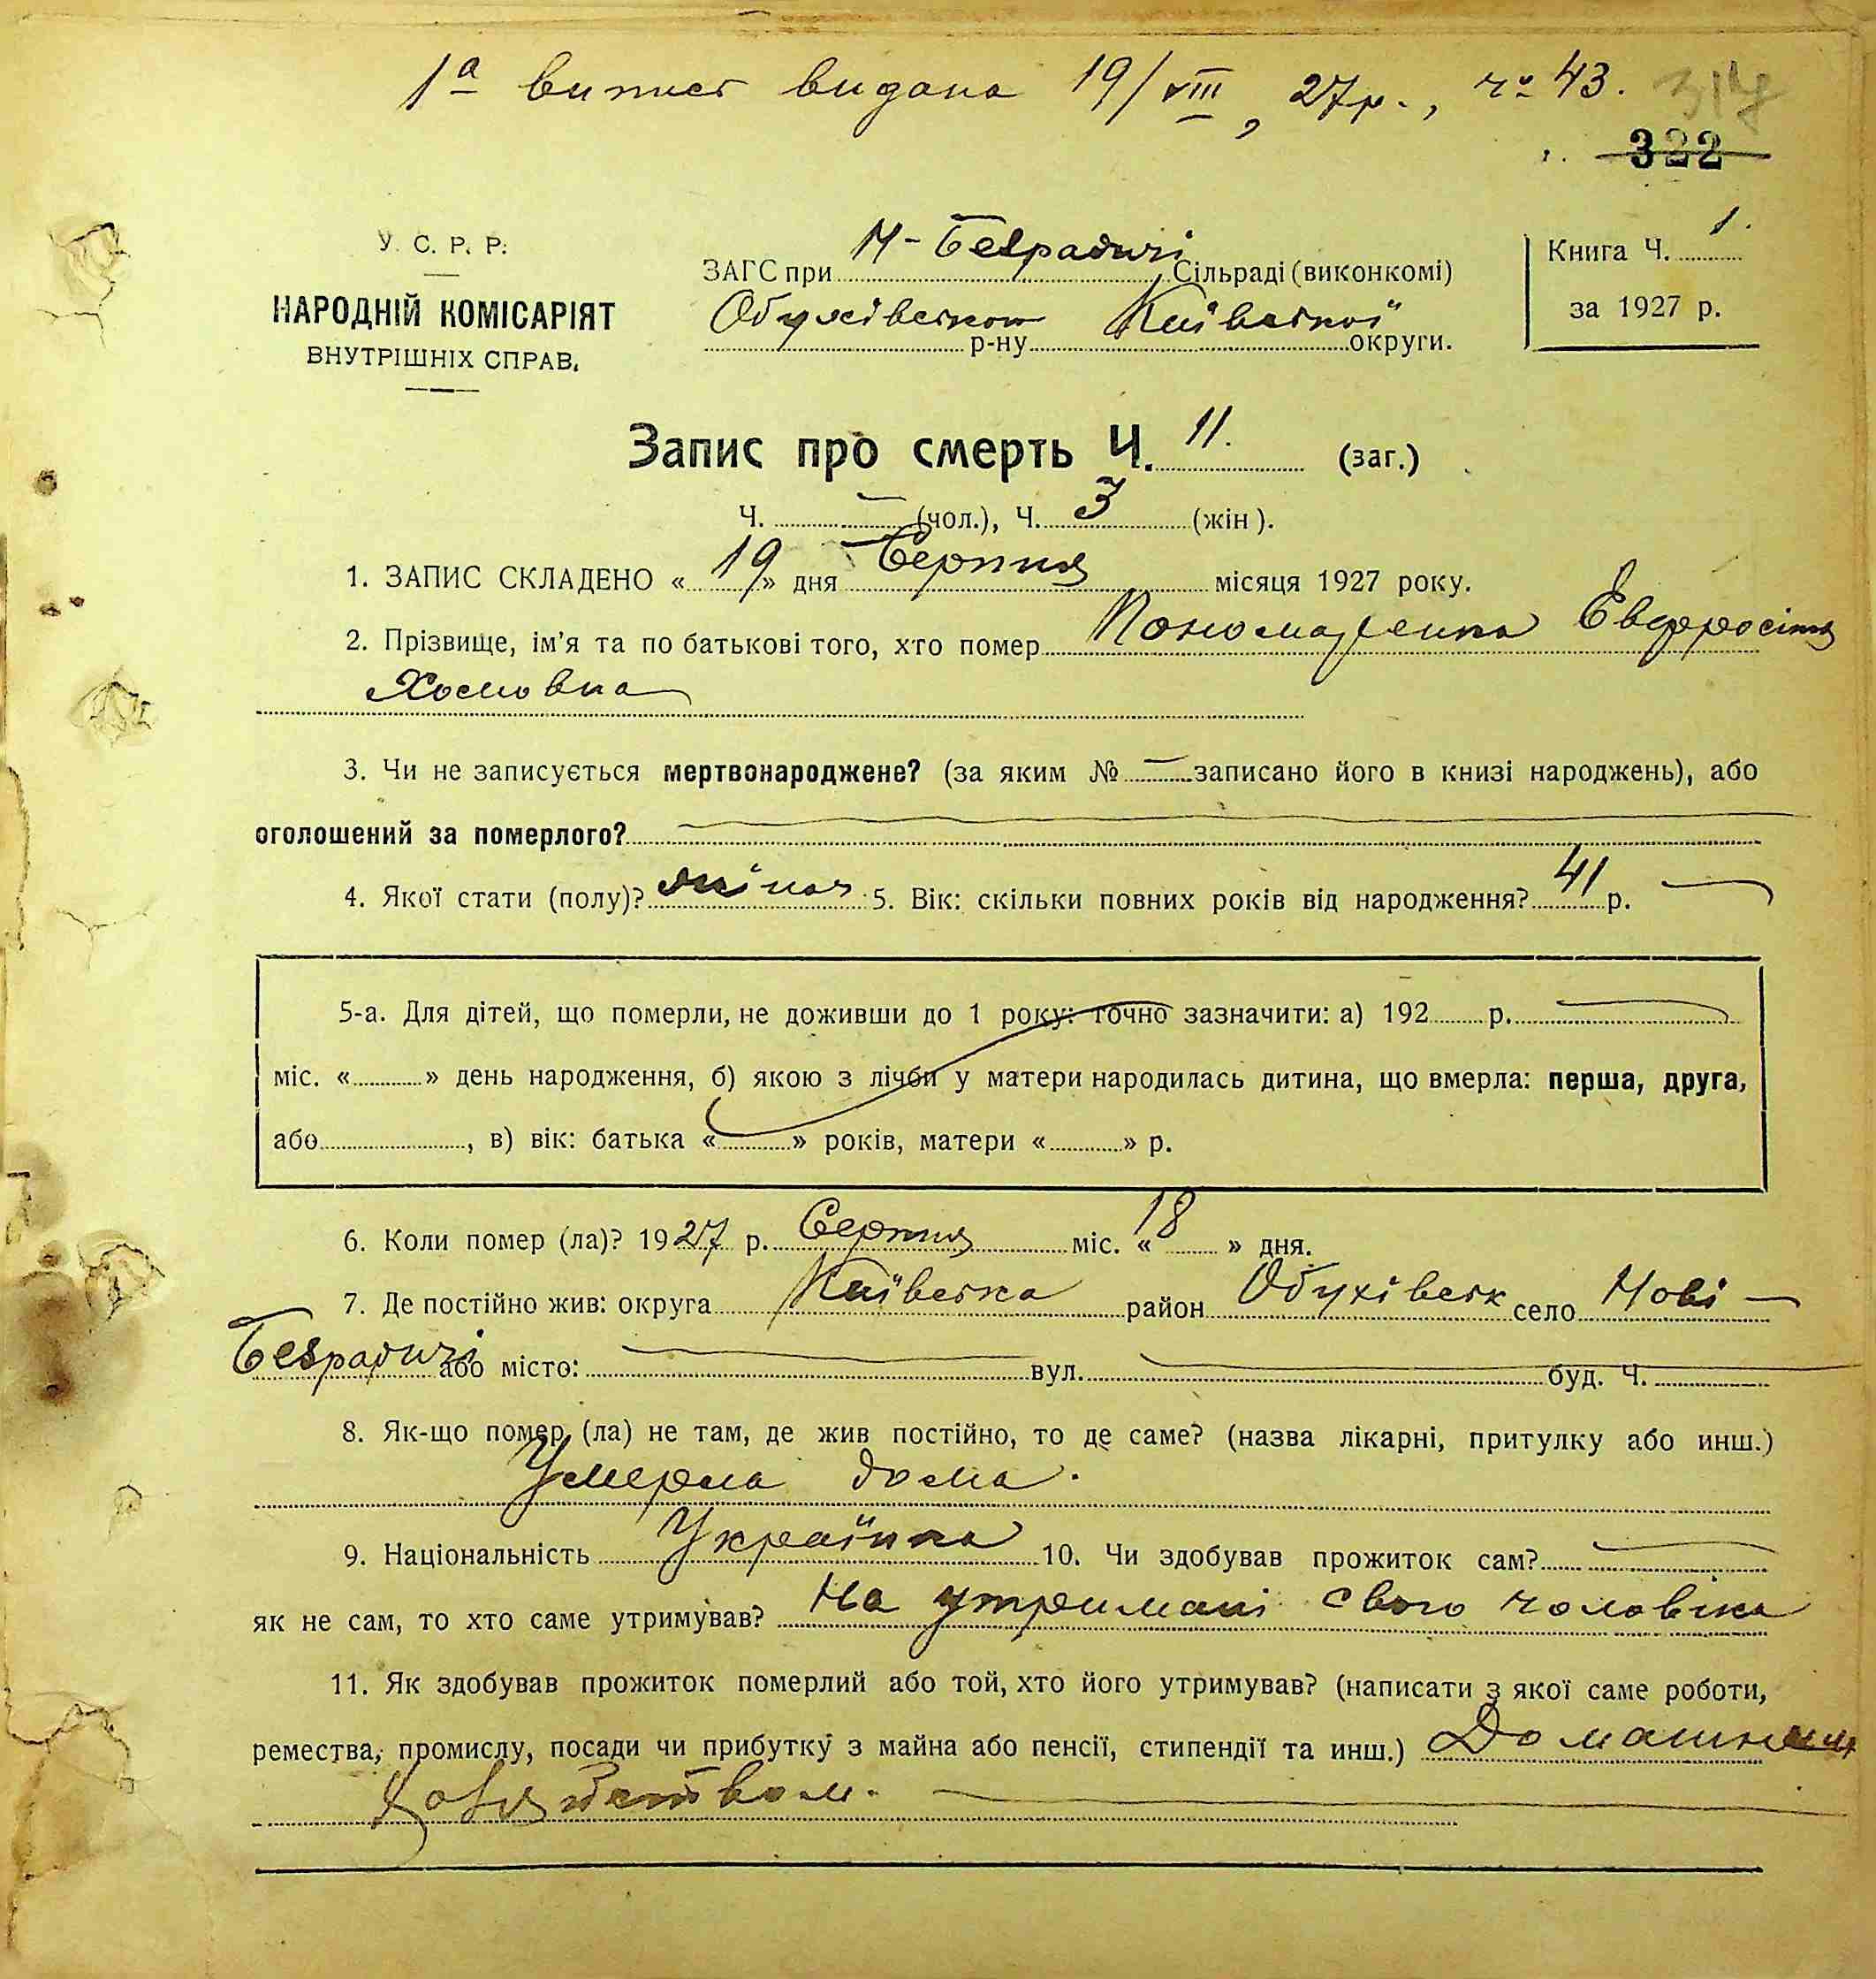 1ª випись видана 19/VIII, 27р., ч° 43. 317
322
У. С. Р. Р.
НАРОДНІЙ КОМІСАРІЯТ
ВНУТРІШНІХ СПРАВ.
ЗАГС при Н-Безрадичі Сільраді (виконкомі)
Обухівського р-ну Київської округи.
Книга Ч. 1.
за 1927 р.
Запис про смерть Ч. 11. (заг.)
Ч. — (чол.), Ч. 3 (жін).
1. ЗАПИС СКЛАДЕНО « 19 » дня Серпня місяця 1927 року.
2. Прізвище, ім'я та по батькові того, хто помер Пономаренко Евфросінія
Хомовна
3. Чи не записується мертвонароджене? (за яким № — записано його в книзі народжень), або
оголошений за померлого? —
4. Якої стати (полу)? жіноч. 5. Вік: скільки повних років від народження? 41 р. —
5-а. Для дітей, що померли, не доживши до 1 року: точно зазначити: а) 192 р.
міс. « » день народження, б) якою з лічби у матери народилась дитина, що вмерла: перша, друга,
або , в) вік: батька « » років, матери « » р.
6. Коли помер (ла)? 1927 р. Серпня міс. « 18 » дня.
7. Де постійно жив: округа Київська район Обухівськ село Нові —
Безрадичі або місто: — вул. — буд. Ч.
8. Як-що помер (ла) не там, де жив постійно, то де саме? (назва лікарні, притулку або инш.)
Умерла дома.
9. Національність Українка 10. Чи здобував прожиток сам? —
як не сам, то хто саме утримував? На утримані свого чоловіка
11. Як здобував прожиток померлий або той, хто його утримував? (написати з якої саме роботи,
ремества, промислу, посади чи прибутку з майна або пенсії, стипендії та инш.) Домашнім
хазяйством. —